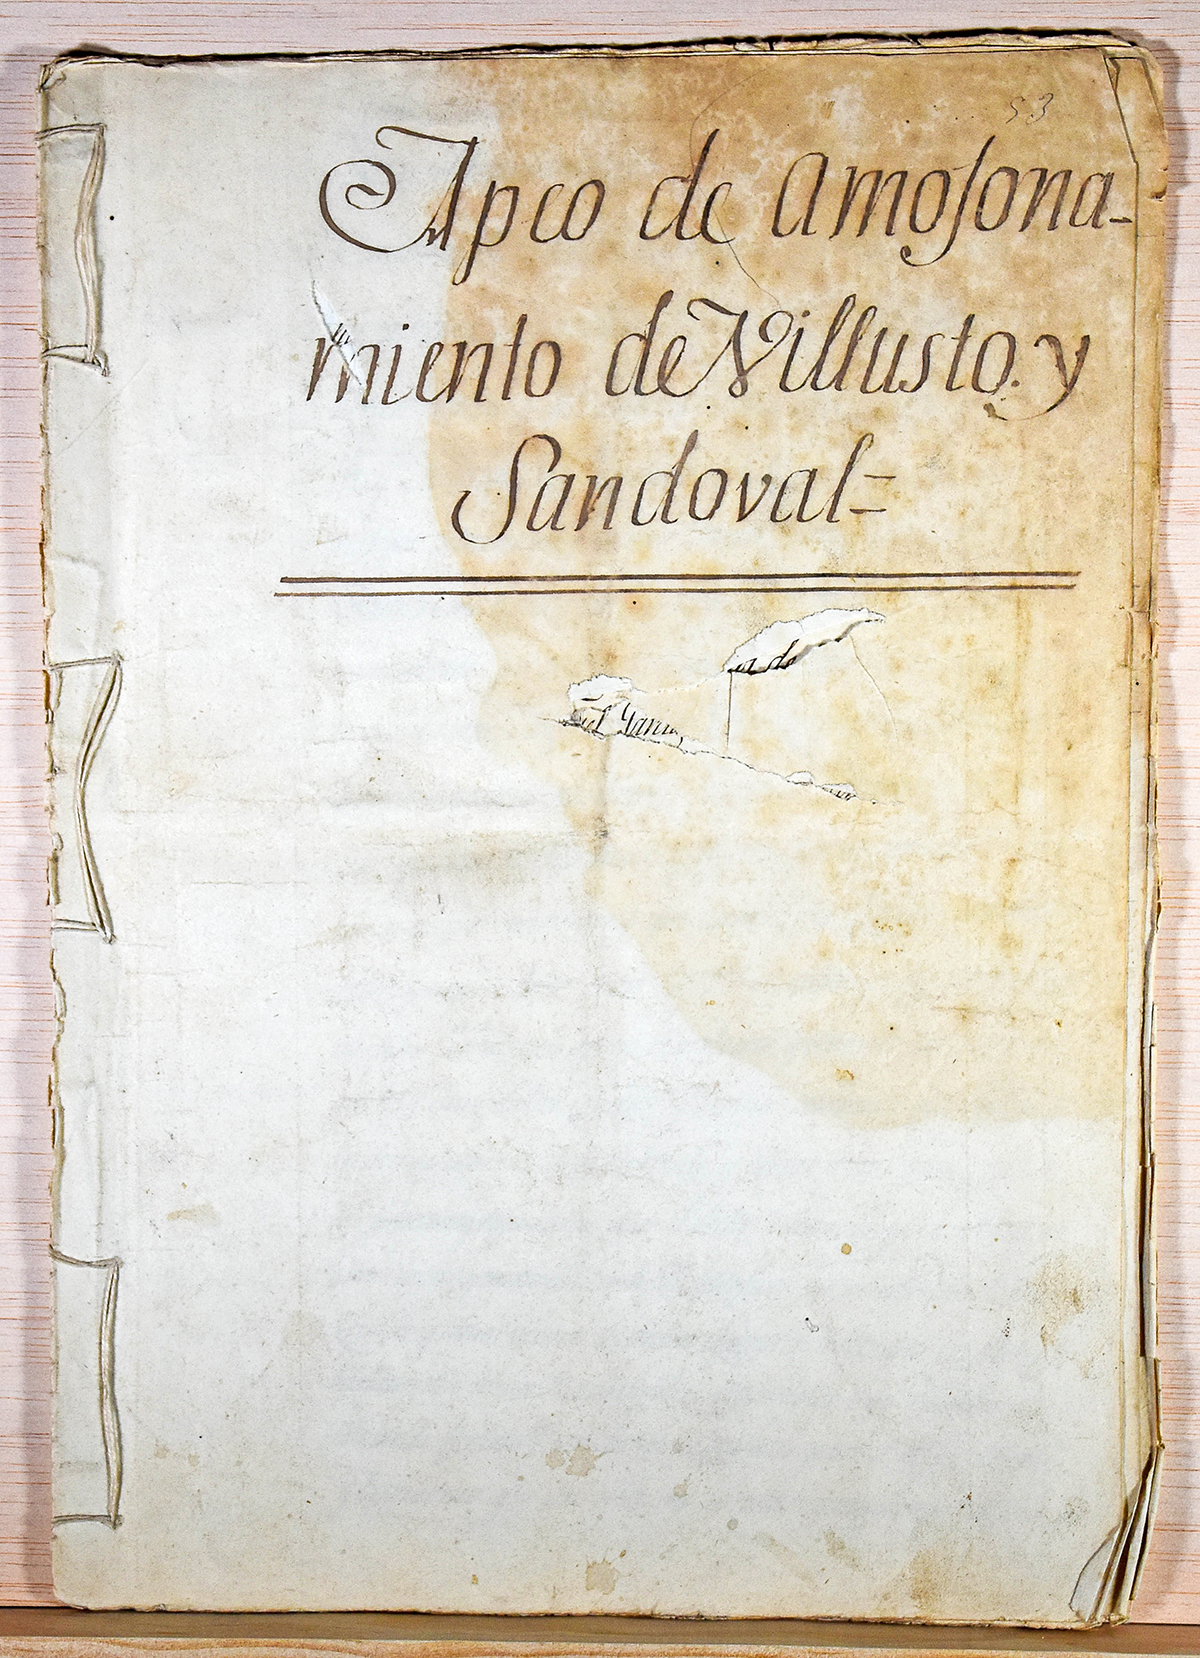 53
Apeo de amojona-
miento de Villusto. y
Sandoval=
de